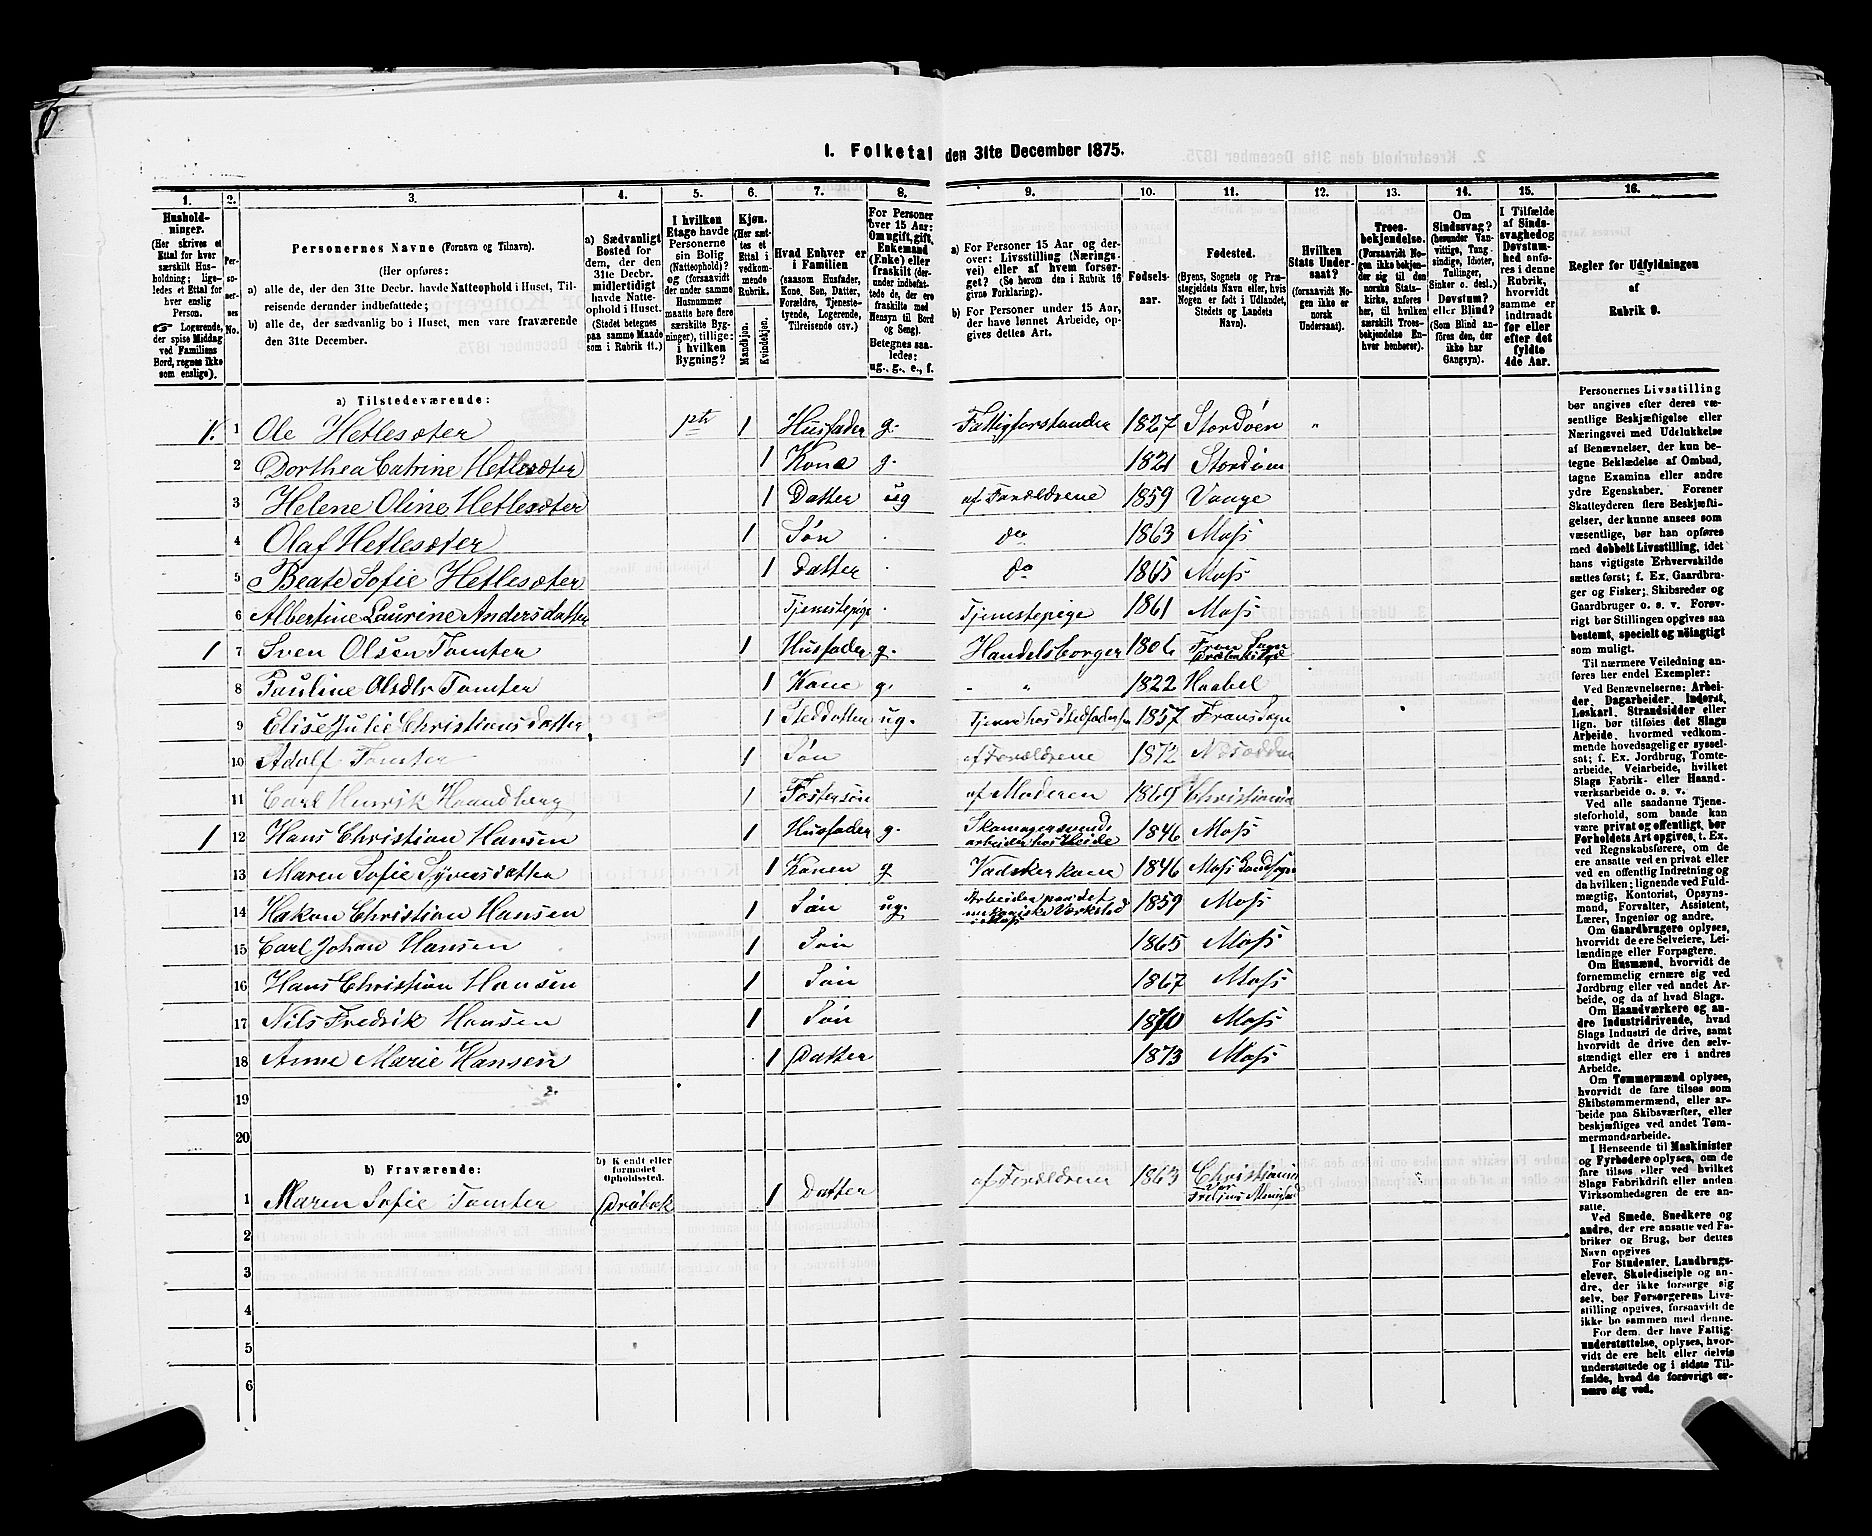 I. Folketal den 31te December 1875.
1. 2. 3. 4. 5. 6. 7. 8. 9. 10. 11. 12. 13. 14. 15. 16.
Hushold-
ninger.
(Her skrives et
Ettal for hver
særskilt Hus-
holdning; lige-
ledes et Ettal for
hver enslig
Person.
☞ Logerende,
der spise Middag
ved Familiens
Bord, regnes ikke
som enslige).
Per-
soner-
nes
No.
Personernes Navne (Fornavn og Tilnavn).
(Her opføres:
a) alle de, der den 31te Decbr. havde Natteophold i Huset, Til-
reisende derunder indbefattede;
b) alle de, der sædvanlig bo i Huset, men vare fraværende
den 31te December.
a) Sædvanligt
Bosted for
dem, der den
31te Decbr.
midlertidigt
havde Natte-
ophold i Huset.
(Stedet betegnes
paa samme Maade
som i Rubrik 11.)
I hvilken
Etage havde
Personerne
sin Bolig
(Natteophold)?
og (forsaavidt
der under samme
Husnummer
maatte høre flere
særskilte Byg-
ninger), tillige:
i hvilken
Bygning?
Kjøn.
(Her sæt-
tes et
Ettal i
vedkom-
mende
Rubrik.
Mandkjøn.
Kvindekjøn.
Hvad Enhver er
i Familien
(saasom Husfader,
Kone, Søn, Datter,
Forældre, Tjeneste-
tyende, Logerende,
Tilreisende osv.)
For Personer
over 15 Aar:
Om ugift, gift,
Enkemand
(Enke) eller
fraskilt (der-
under indbefat-
tede de, der ere
fraskilte med
Hensyn til Bord
og Seng).
Betegnes saa-
ledes:
ug., g., e., f.
a) For Personer 15 Aar og der-
over: Livsstilling (Nærings-
vei) eller af hvem forsør-
get? (Se herom den i Rubrik 16
givne Forklaring).
b) For Personer under 15 Aar,
der have lønnet Arbeide, op-
gives dettes Art.
Fødsels-
aar.
Fødested.
(Byens, Sognets og Præ-
stegjeldets Navn eller, hvis
Nogen er født i Udlandet,
Stedets og Landets
Navn).
Hvilken
Stats Under-
saat?
(forsaavidt No-
gen ikke er
norsk
Undersaat).
Troes-
bekjendelse.
(Forsaavidt No-
gen ikke bekjen-
der sig til den
norske Stats-
kirke, anføres
her, til hvilken
særskilt Troes-
bekjendelse En-
hver henhører).
Om
Sindssvag?
(herunder Van-
vittige, Tung-
sindige, Idioter,
Tullinger,
Sinker o. desl.)
Døvstum?
eller Blind?
(Som Blind an-
føres den, der
ikke har
Gangsyn).
I Tilfælde
af Sinds-
svaghed og
Døvstum-
hed anfø-
res i denne
Rubrik,
hvorvidt
samme er
indtraadt
før eller
efter det
fyldte
4de Aar.
Regler for Udfyldningen
af
Rubrik 9.
a) Tilstedeværende:
1. 1 Ole Hetlesæter ptr 1 Husfader g. Fattigforstander 1827 Stordøen "
2 Dorthea Catrine Hetlesæter 1 Kone g. 1821 Stordøen
3 Helene Oline Hetlesæter 1 Datter ug af Forældrene 1859 Vaage
4 Olaf Hetlesæter 1 Søn . do 1863 Moss
5 Beate Sofie Hetlesæter 1 Datter . do 1865 Moss
6 Albertine Laurine Andersdatter Tjenestepige . Tjenestepige 1861 Moss
1 7 Sven Olsen Tomter 1 Husfader g. Handelsborger 1806
8 Pauline Olsdtr Tomter 1 Kone g. " " 1822 Haabel
9 Elise Julie Christiansdatter 1 Steddatter ug. 1857 Frans Sogn
10 Adolf Tomter 1 Søn af Forældrene 1872 Næsodden
11 Carl Henrik Haandberg 1 Fostersøn af Moderen 1869 Christiania
1 12 Hans Christian Hansen 1 Husfader g. arbeider hos Heide 1846 Moss
13 Maren Sofie Syversdatter 1 Konen g Vadskerkone 1846 Moss Landsogn
14 Hakon Christian Hansen 1 Søn ug. Arbeider paa det
mekaniske Værksted
i Moss 1859 Moss
15 Carl Johan Hansen 1 Søn 1865 Moss
16 Hans Christian Hansen 1 Søn 1867 Moss
17 Nils Fredrik Hansen 1 Søn 1870 Moss
18 Anne Marie Hansen 1 Datter 1873 Moss
19
20
b) Fraværende:
b) Kjendt eller
formodet
Opholdssted.
1 Maren Sofie Tomter Drøbak 1 Datter af Forældrene 1863 Christiania
2
3
4
5
6
Personernes Livsstilling
bør angives efter deres væ-
sentlige Beskjæftigelse eller
Næringsvei med Udelukkelse
af Benævnelser, der kun be-
tegne Beklædelse af Ombud,
tagne Examina eller andre
ydre Egenskaber. Forener
Skatteyderen flere Beskjæfti-
gelser, der kunne ansees som
væsentlige, bør han opføres
med dobbelt Livsstilling, idet
hans vigtigste Erhvervskilde
sættes først; f. Ex. Gaardbru-
ger og Fisker; Skibsreder og
Gaardbruger o. s. v. Forøv-
rigt bør Stillingen opgives saa
bestemt, specielt og nøiagtigt
som muligt.
Til nærmere Veiledning an-
føres her endel Exempler:
Ved Benævnelserne: Arbei-
der, Dagarbeider, Inderst,
Løskarl, Strandsidder eller
lign. bør tilføies det Slags
Arbeide, hvormed vedkom-
mende hovedsagelig er syssel-
sat; f. Ex. Jordbrug, Tomte-
arbeide, Veiarbeide, hvilket
Slags Fabrik- eller Haand-
værksarbeide o. s. v.
Ved alle saadanne Tjene-
steforhold, som baade kan
være privat og offentligt, bør
Forholdets Art opgives, f. Ex.
ved Regnskabsførere, om de
ere ansatte ved en privat eller
ved en offentlig Indretning og
da hvilken; lignende ved Fuld-
mægtig, Kontorist, Opsyns-
mand, Forvalter, Assistent,
Lærer, Ingeniør og andre.
Om Gaardbrugere oplyses,
hvorvidt de ere Selveiere, Lei-
lændinge eller Forpagtere.
Om Husmænd, hvorvidt de
fornemmelig ernære sig ved
Jordbrug eller ved andet Ar-
beide, og da af hvad Slags.
Om Haandværkere og an-
dre Industridrivende, hvad
Slags Industri de drive, samt
hvorvidt de drive den selv-
stændigt eller ere i andres
Arbeide.
Om Tømmermænd oplyses,
hvorvidt de fare tilsøs som
Skibstømmermænd, eller ar-
beide paa Skibsværfter, eller
beskjæftiges ved andet Tøm-
mermandsarbeide.
I Henseende til Maskinister
og Fyrbødere oplyses, om de
fare tilsøs eller ved hvilket
Slags Fabrikdrift eller anden
Virksomhedsgren de ere an-
satte.
Ved Smede, Snedkere og
andre, der ere ansatte ved Fa-
briker og Brug, bør dettes
Navn opgives
For Studenter, Landbrugs-
elever, Skoledisciple og an-
dre, der ikke forsørge sig
selv, bør Forsørgerens Livs-
stilling opgives, forsaavidt de
ikke bo sammen med denne.
For dem, der have Fattig-
understøttelse, oplyses, hvor-
vidt de ere helt eller delvis
understøttede og i sidste Til-
fælde, hvad de forøvrigt er-
nære sig ved.